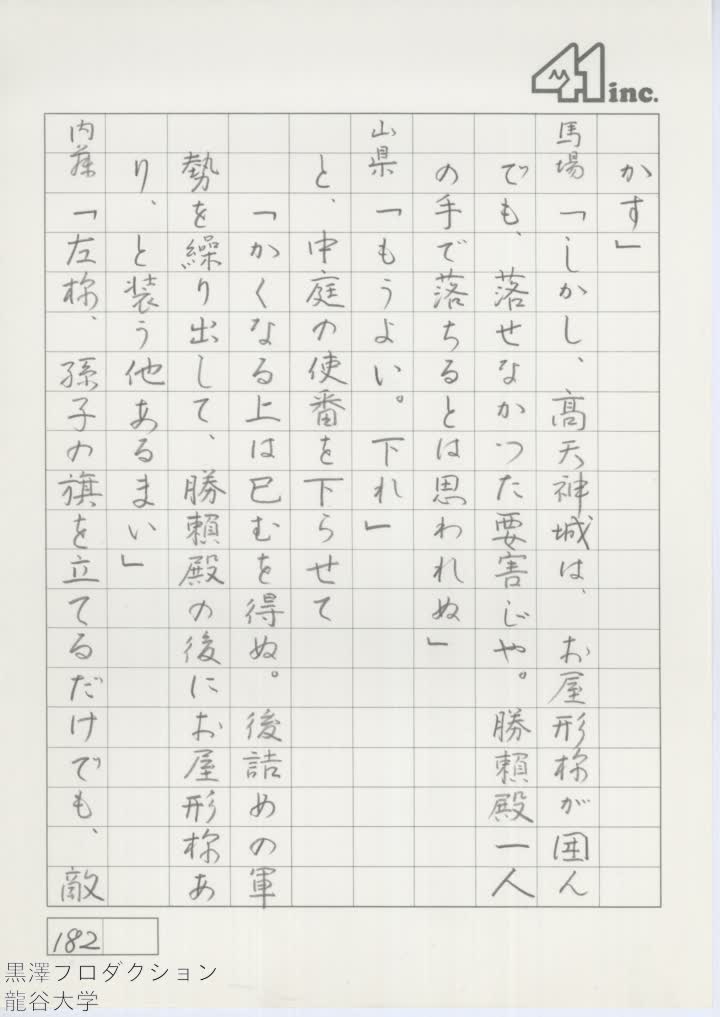 41 inc.
かす」
馬場「しかし、高天神城は、お屋形様が囲ん
でも、落せなかつた要害じや。勝頼殿一人
の手で落ちるとは思われぬ」
山県「もうよい。下れ」
と、中庭の使番を下らせて
「かくなる上は已むを得ぬ。後詰めの軍
勢を繰り出して、勝頼殿の後にお屋形様あ
り、と装う他あるまい」
内藤「左様、孫子の旗を立てるだけでも、敵
182
黒澤プロダクション
龍谷大学